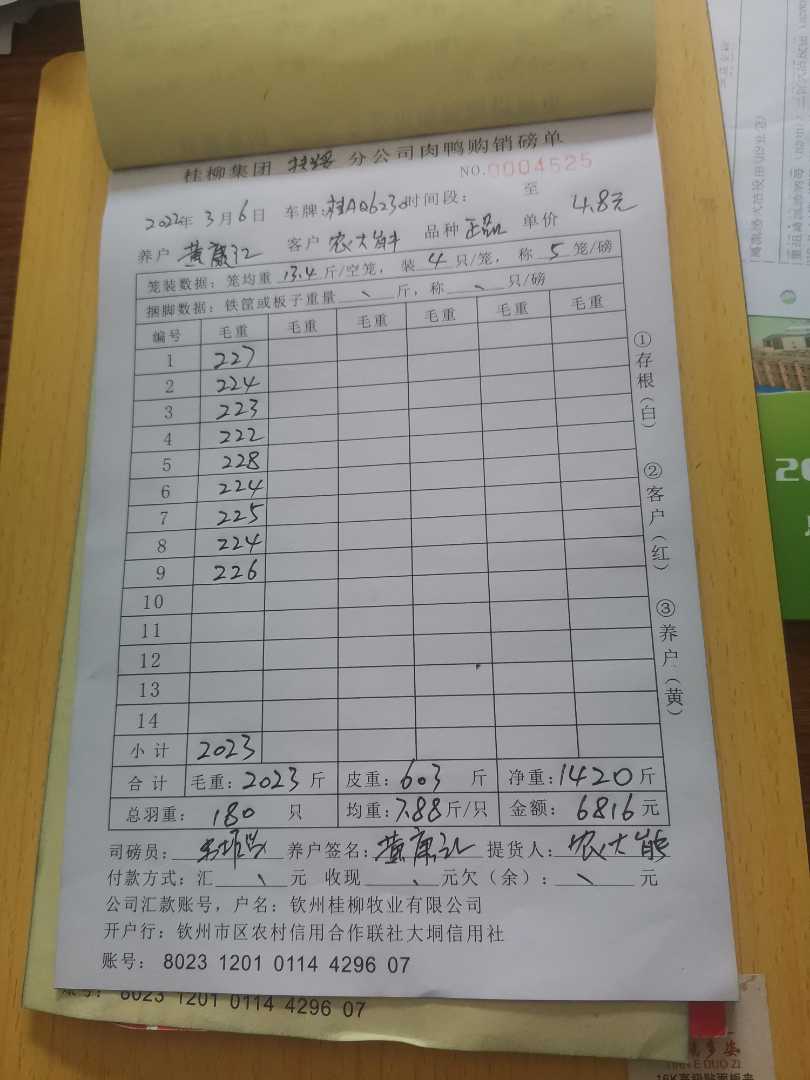 桂柳集团 扶绥 分公司肉鸭购销磅单
NO.0004525
2022年 3月6日 车牌:桂AQ6230 时间段: 至
养户 黄康弘 客户 农大能 品种 正品 单价 4.8元
笼装数据: 笼均重 13.4 斤/空笼, 装 4 只/笼, 称 5 笼/磅
捆脚数据: 铁筐或板子重量 、 斤, 称 、 只/磅
编号 毛重 毛重 毛重 毛重 毛重 毛重
1 227
2 224
3 223
4 222
5 228
6 224
7 225
8 224
9 226
10
11
12
13
14
小计 2023
合计 毛重:2023 斤 皮重:603 斤 净重:1420 斤
总羽重: 180 只 均重:7.88 斤/只 金额: 6816 元
司磅员: 养户签名: 黄康弘 提货人: 农大能
付款方式: 汇 、 元 收现 、 元欠(余): 、 元
公司汇款账号, 户名: 钦州桂柳牧业有限公司
开户行: 钦州市区农村信用合作联社大垌信用社
账号: 8023 1201 0114 4296 07
①存根(白)
②客户(红)
③养户(黄)
8023 1201 0114 4296 07